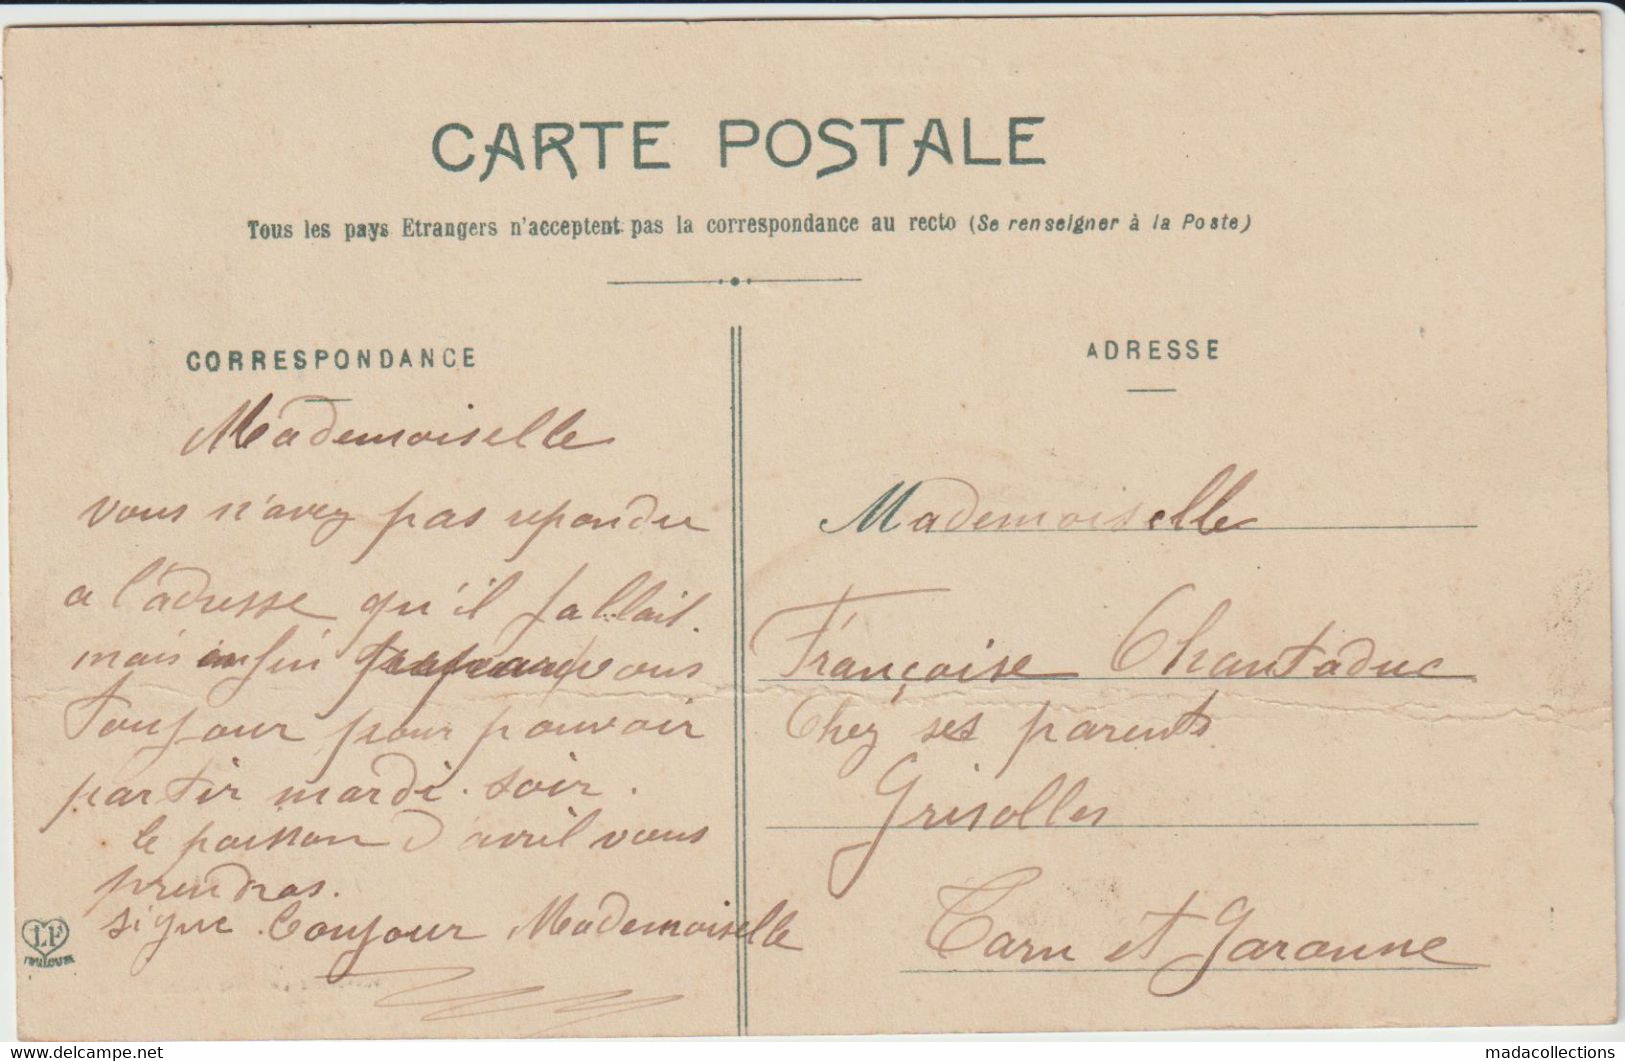 CARTE POSTALE
Tous les pays Etrangers n'acceptent pas la correspondance au recto (Se renseigner à la Poste)
CORRESPONDANCE
Mademoiselle
vous n'avez pas repondu
a l'adresse qu'il fallait.
mais enfin vous
Toujour pour pouvoir
partir mardi soir.
le poisson d'avril vous
prendras.
signe Bonjour Mademoiselle
LF
TOULOUSE
ADRESSE
Mademoiselle
Françoise Chantaduc
Chez ses parents
Grisolles
Tarn et Garonne
delcampe.net
madacollections